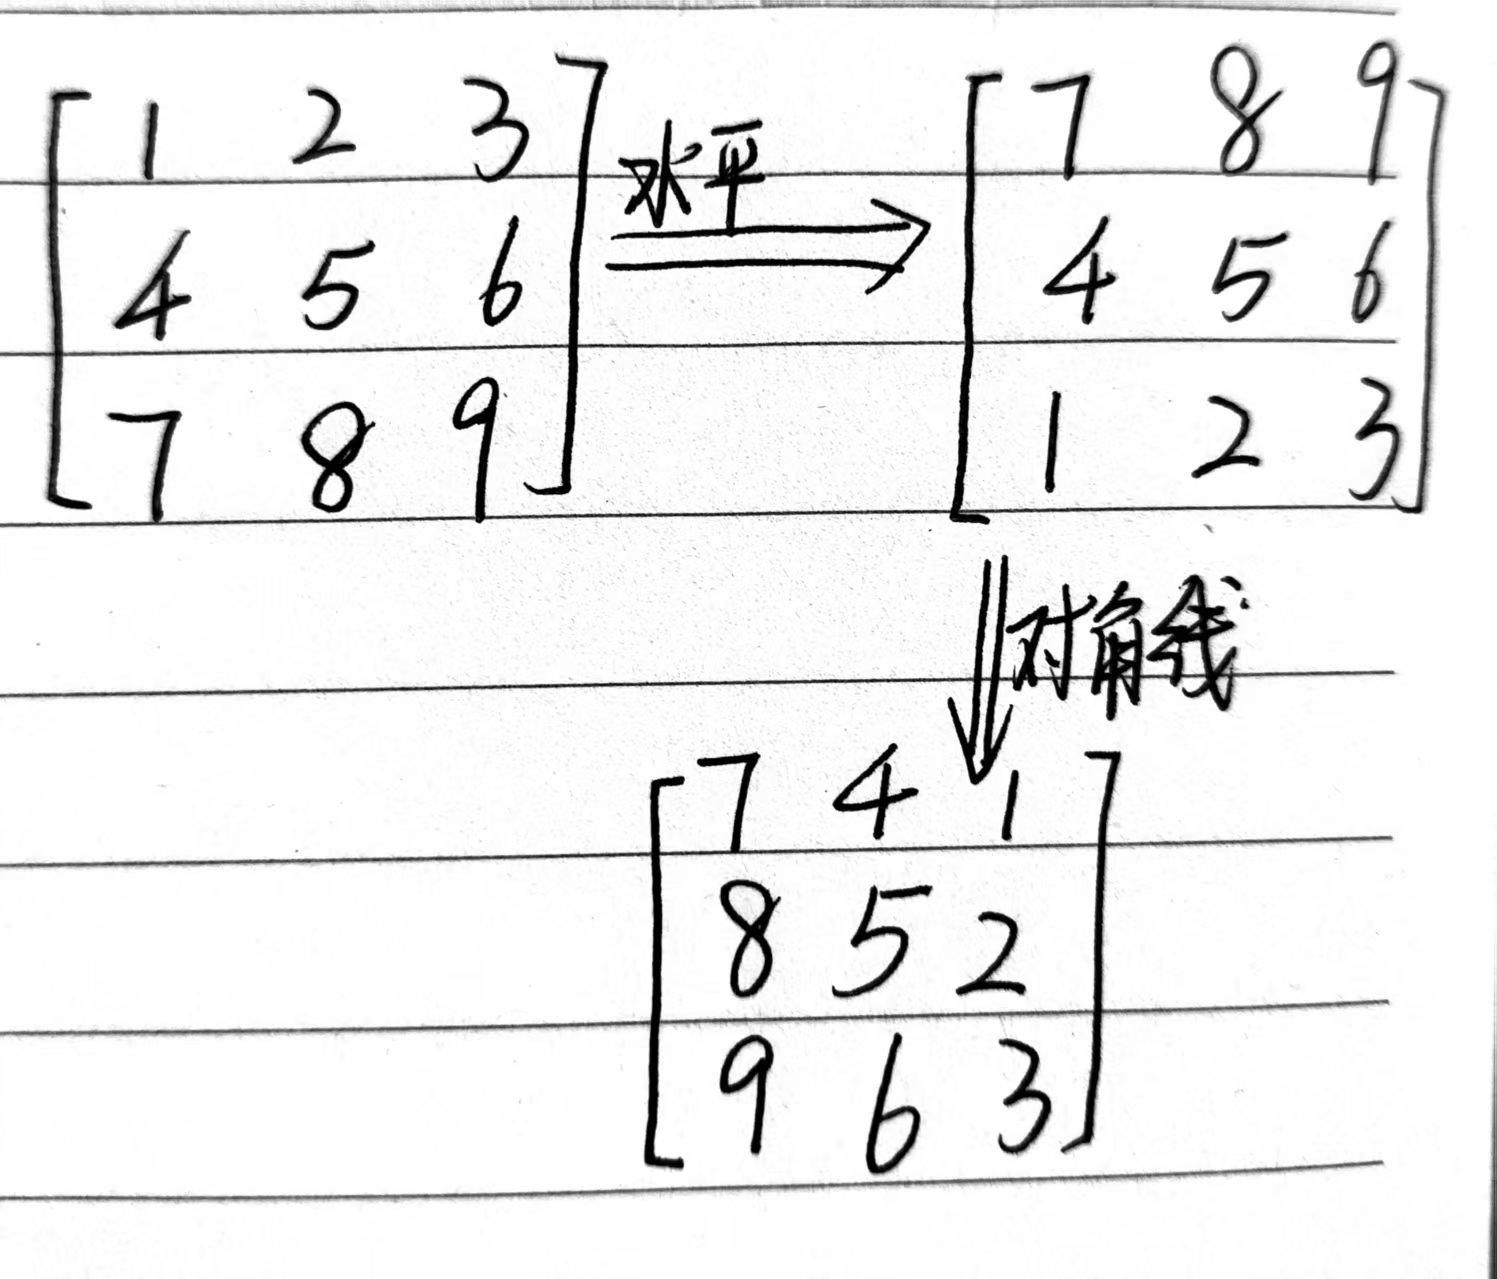 1 2 3
4 5 6
7 8 9
水平
7 8 9
4 5 6
1 2 3
对角线
7 4 1
8 5 2
9 6 3